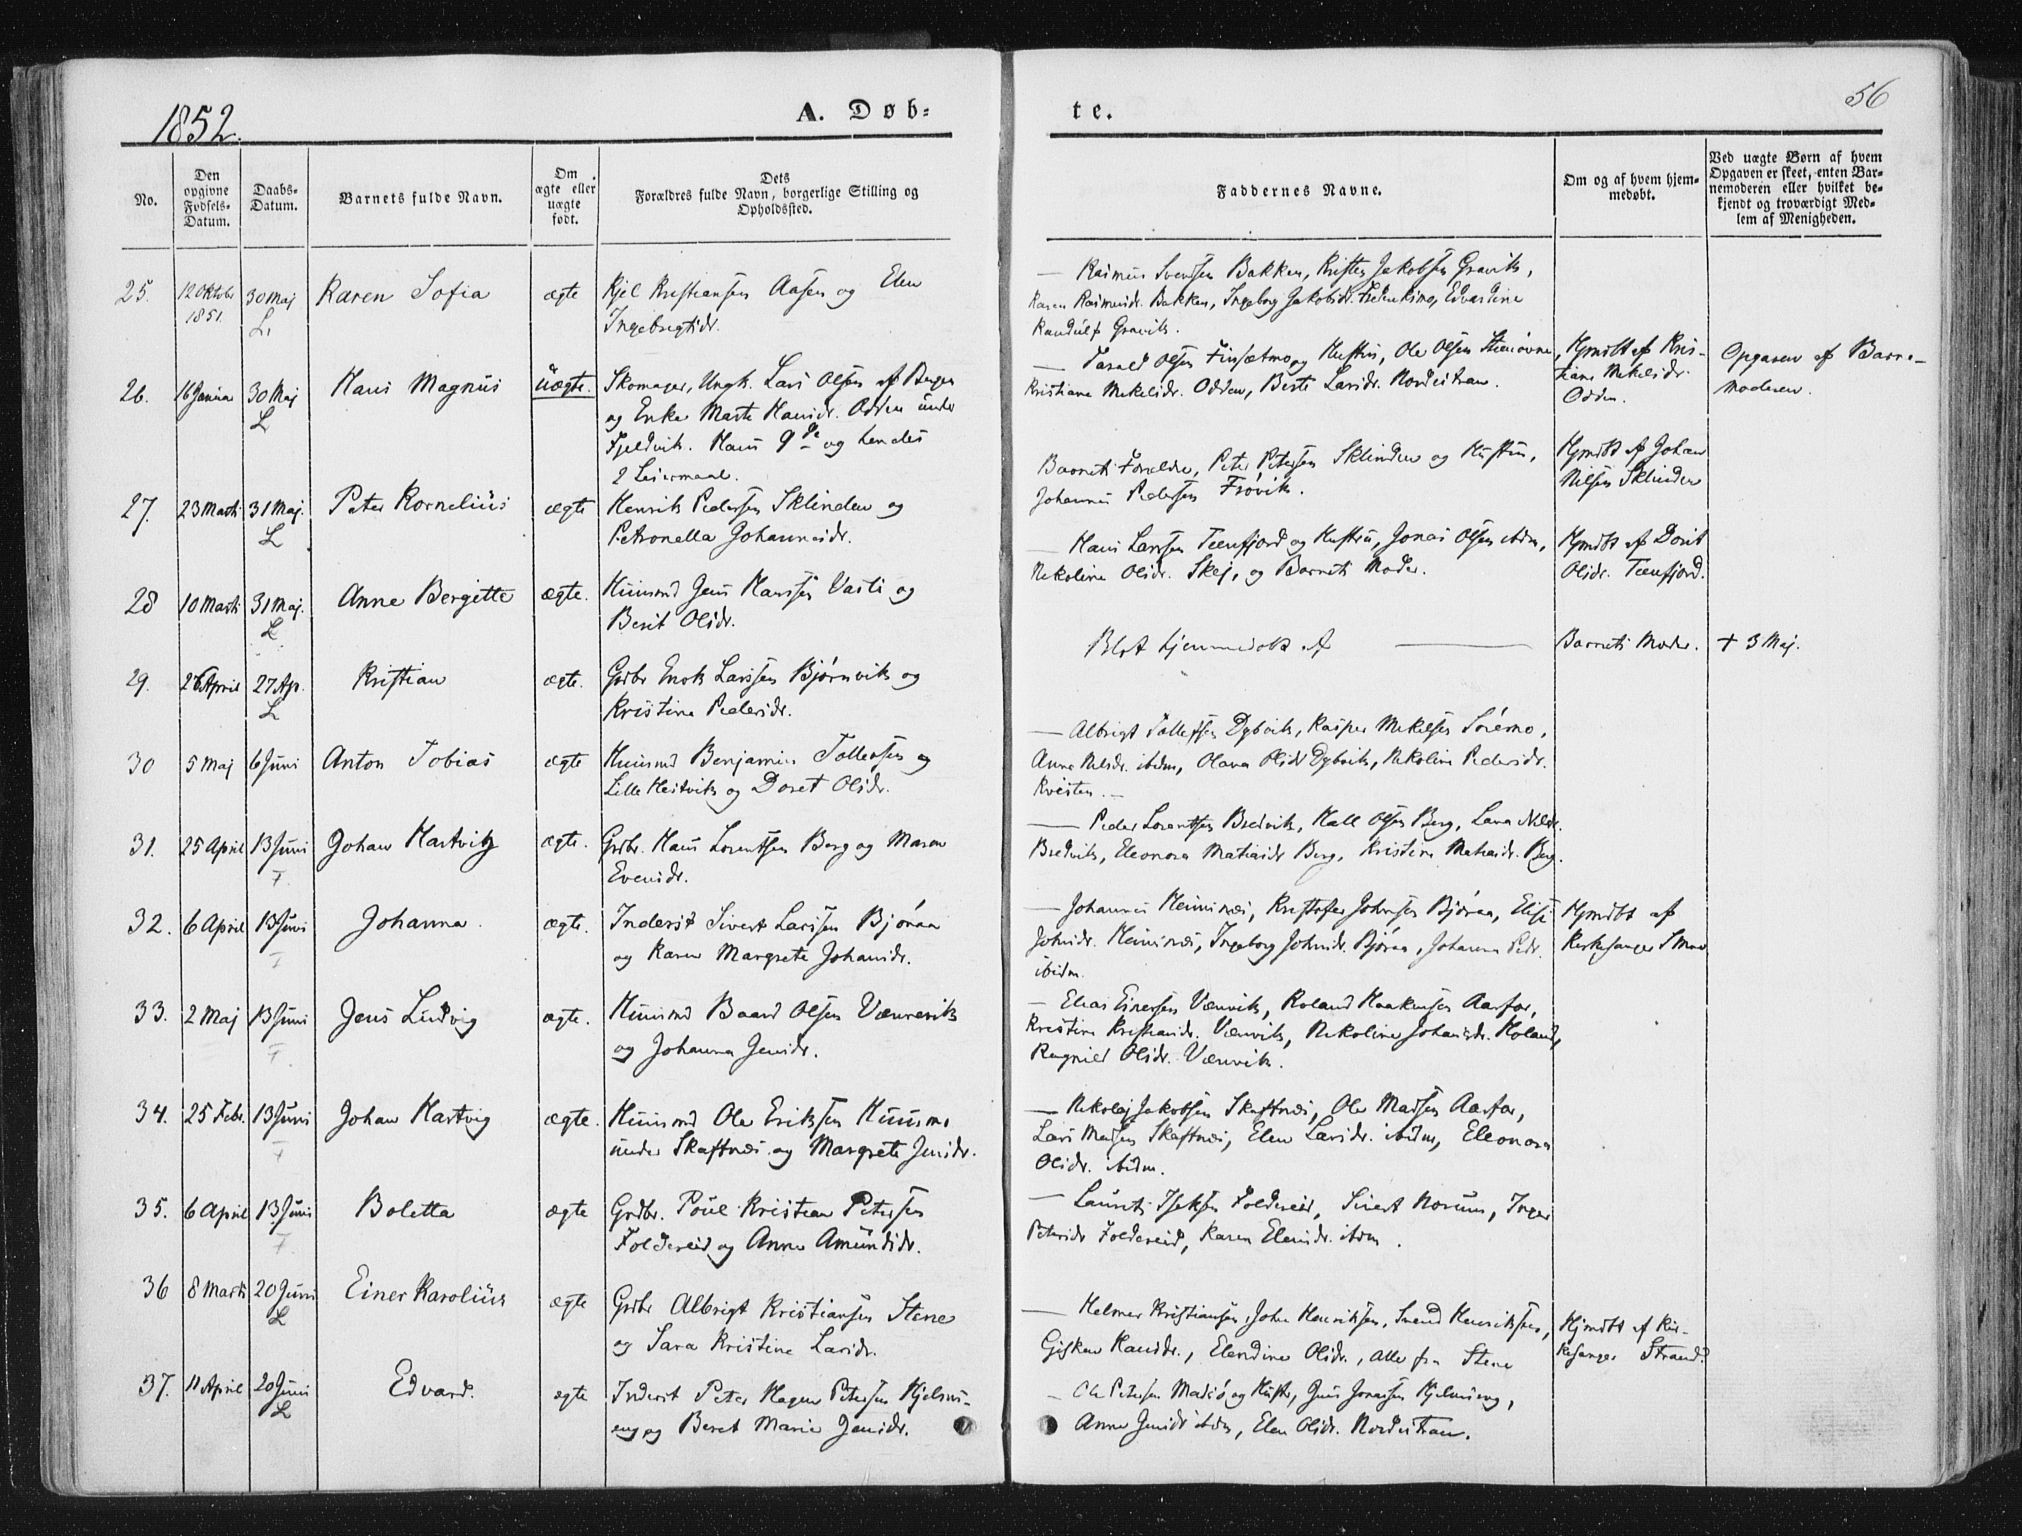 1852.
A. Døb-
te.
56
No.
Den opgivne Fødsels-Datum.
Daabs-Datum.
Barnets fulde Navn.
Om ægte eller uægte født.
Dets
Forældres fulde Navn, borgerlige Stilling og
Opholdssted.
Faddernes Navne.
Om og af hvem hjem-
medøbt.
Ved uægte Børn af hvem
Opgaven er skeet, enten Bar-
nemoderen eller hvilket be-
kjendt og troværdigt Med-
lem af Menigheden.
25. 12 Oktober 1851. 30 Maj L. Karen Sofia ægte Kjel Kristiansen Aasen og Elen
Ingebrigtsdr.
— Rasmus Svendsen Bakken, Kristen Jakobsen Gravik,
Karen Rasmusdr. Bakken, Ingeborg Jakobsdr. Edvardine
Randulf Gravik.
26. 16 Januar 30 Maj L Hans Magnus uægte. Skomager, Ungk. Lars Olsen af Bergen
og Enke Marte Hansdr. Odden under
Fjeldvik. Hans 9de og hendes
2 Leiermaal.
— Tarald Olsen Finsætmo og Hustru, Ole Olsen
Kristiane Mekelsdr. Odden, Berte Larsdr. Nordestran.
Hjmdbt af Kris-
tiane Mekelsdr.
Odden.
Opgaven af Barne-
moderen.
27. 23 Marti 31 Maj. L Peter Kornelius ægte Henrik Pedersen Sklinden og
Petronella Johannesdr.
Barnets Forældre, Peter Petersen Sklinden og Hustru,
Johannes Pedersen Frøvik.
Hjmdbt af Johan
Nilsen Sklinden
28 10 Marti 31 Maj. L Anne Bergitte ægte. Huusmd Jens Hansen Vasli og
Berit Olsdr.
— Hans Larsen Teenfjord og Hustru, Jonas Olsen ibdm,
Nekoline Olsdr. Skej, og Barnets Moder.
Hjmdbt af Dorit
Olsdr. Teenfjord.
29. 26 April 27 Ap. L Kristian ægte. Grdbr Enok Larssen Bjørnvik og
Kristine Pedersdr.
Blot hjemmedøbt af — Barnets Moder. + 3 Maj.
30 5 Maj 6 Juni Anton Tobias ægte Huusmd Benjamin Tollefsen
Lille Hestvik og Doret Olsdr.
— Albrigt Tollefsen Dybvik, Kasper Mekelsen Sørmo,
Anne Nelsdr. ibdm, Olava Olsdr Dybvik, Nekoline Pedersdr.
Kvisten. —
31. 25 April 13 Juni F. Johan Hartvig ægte. Grdbr. Hans Lorentsen Berg og Maren
Evensdr.
— Peder Lorentsen Bredvik, Hall Olsen Berg, Lava Nilsdr.
Bredvik, Eleonora Matiasdr Berg, Kristine Matiasdr. Berg.
32. 6 April 13 Juni F Johanna. ægte. Inderst Sivert Larssen Bjøraa
og Karen Margrete Johansdr.
— Johannes Heimnæs, Kristofer Johnsen Bjøraa, Elise
Johnsdr. Heimnæs, Ingeborg Johnsdr. Bjøraa, Johanna Pedr.
ibidm.
Hjmdbt af
Kirkesanger Strand
33. 2 Maj 13 Juni F Jens Ludvig ægte. Huusmd Baard Olsen Værnvik
og Johanna Jensdr.
— Elias Einersen Værnvik, Roland Haakensen Aarfor,
Kristine Kristiansdr. Værnvik, Nekoline Johansdr. Holand,
Ragnild Olsdr. Værnvik.
34. 25 Febr. 13 Juni F Johan Hartvig ægte. Huusmd Ole Eriksen Huusmo
under Skaftnæs og Margrete Jensdr.
— Nekolaj Jakobsen Skaftnæs, Ole Madsen Aarfor,
Lars Madsen Skaftnæs, Elen Larsdr. ibidm, Eleonora
Olsdr. ibidm.
35. 6 April 13 Juni F. Boletta ægte Grdbr. Poul Kristian Petersen
Foldereid og Anne Amundsdr.
— Laurits Isaksen Foldereid, Sivert Norum, Inger
Petersdr Foldereid, Karen Elensdr. ibdm.
36 8 Marti 20 Juni L Einer Karolius ægte Grdbr Albrigt Kristiansen Stene
og Sara Kristine Larsdr.
— Helmer Kristiansen, John Henriksen, Svend Henriksen,
Gjsken Hansdr., Elendine Olsdr., alle fra Stene
Hjmdbt af Kir-
kesanger Strand.
37. 11 April 20 Juni L Edvard. ægte Inderst Peter Hagen Petersen Hjelms-
eng og Beret Marie Jensdr.
— Ole Petersen Madsø og Hustr, Jens Jonassen Hjelmseng,
Anne Jensdr ibdm, Elen Olsdr. Nordestran.